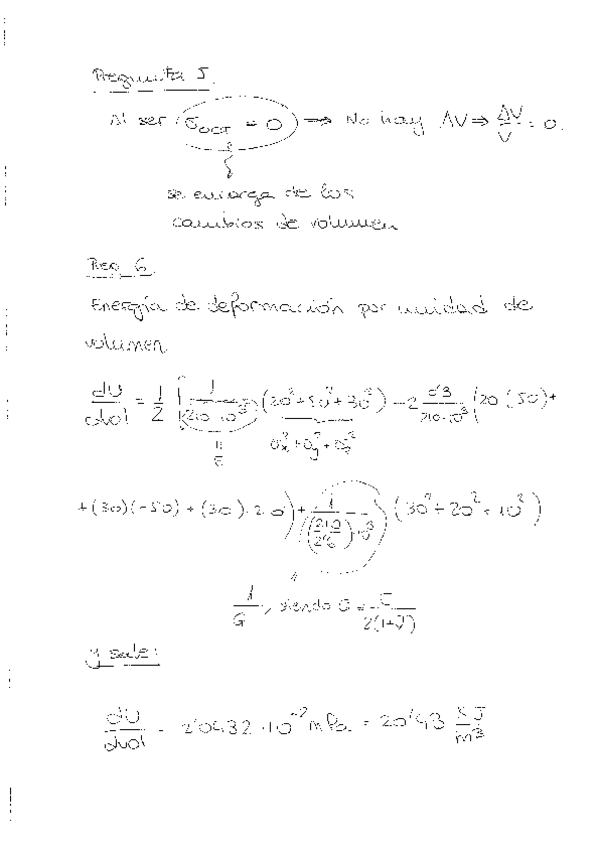 Pregunta 5.
Al ser (σOCT = 0) → No hay ΔV ⇒ ΔV/V = 0.
se encarga de los
cambios de volumen
Preg 6.
Energía de deformación por unidad de
volumen
dU/dvol = 1/2 [1/(210·10³) (20² + 50² + 30²) - 2 0'3/(210·10³) (20(50) +
E
σx² + σy² + σz²
+ (30)(-50) + (30)·20) + 1/((210/2'6)·10³) (30² + 20² + 10²)
1/G, siendo G = E/2(1+ν)
y sale:
dU/dvol = 2'0432·10⁻² MPa = 20'43 KJ/m³